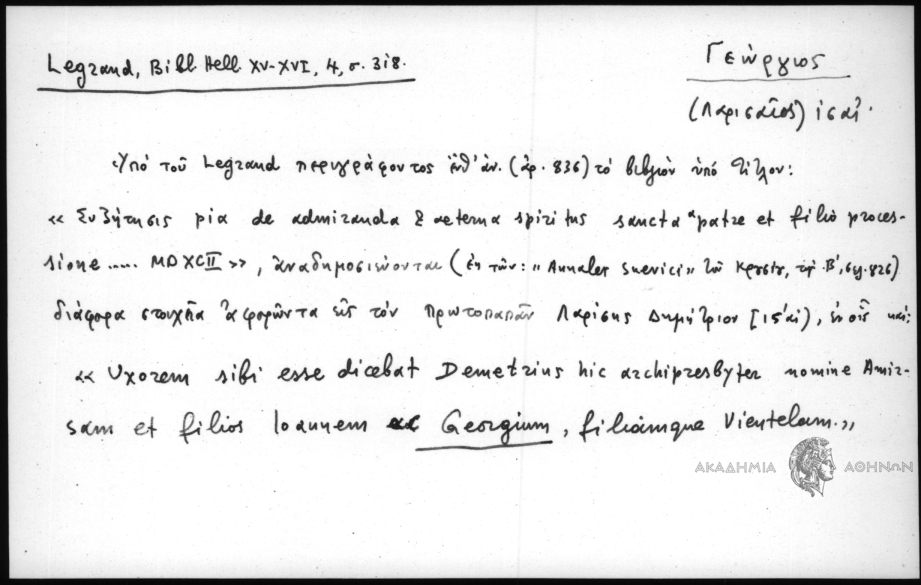 Legrand, Bibl. Hell. XV-XVI, 4, σ. 318.
Γεώργιος
(Λαρισαῖος) ις αἰ.
Ὑπό τοῦ Legrand περιγράφοντος ἐνθ' ἀν. (ἀρ. 836) τό βιβλίον ὑπό τίτλον:
« Συζήτησις pia de admiranda & aeterna spiritus sancta a patre et filio proces-
sione ..... MDXCII », ἀναδημοσιεύονται (ἐκ τῶν: „ Annales Suevici" τοῦ Κρουσίου, Β', σελ. 826)
διάφορα στοιχεῖα ἀφορῶντα εἰς τόν πρωτοπαπᾶν Λαρίσης Δημήτριον [ις' αἰ), ἐν οἷς καί:
« Uxorem sibi esse dicebat Demetrius hic archipresbyter nomine Amir-
sam et filios Ioannem ac Georgium, filiamque Vientelam. „
ΑΚΑΔΗΜΙΑ ΑΘΗΝΩΝ